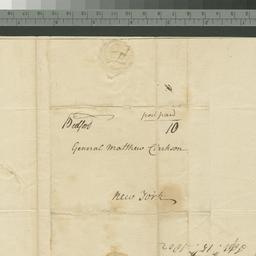 Bedford post paid
10
General Matthew Clarkson
New York
Sept. 15. 1802